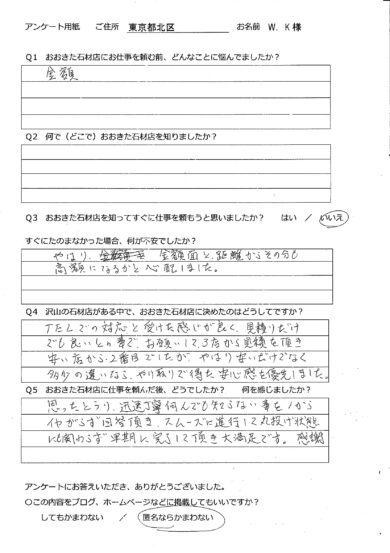 アンケート用紙 ご住所 東京都北区 お名前 W.K様
Q1 おおきた石材店にお仕事を頼む前、どんなことに悩んでましたか？
金額
Q2 何で（どこで）おおきた石材店を知りましたか？
Q3 おおきた石材店を知ってすぐに仕事を頼もうと思いましたか？ はい ／ いいえ
すぐにたのまなかった場合、何が不安でしたか？
やはり、金額面と、距離からその分も
高額になるかと心配しました。
Q4 沢山の石材店がある中で、おおきた石材店に決めたのはどうしてですか？
TELでの対応と受けた感じが良く、見積りだけ
でも良いとの事で、お願いして3店から見積を頂き
安い店から2番目でしたが、やはり安いだけでなく
多少の違いなら、やり取りで得た安心感を優先しました。
Q5 おおきた石材店に仕事を頼んだ後、どうでしたか？ 何を感じましたか？
思ったとうり、迅速丁寧何んでも知らない事を1から
イヤがらず回答頂き、スムーズに進行して丸投げ状態
にも関わらず早期に完了して頂き大満足です。感謝
アンケートにお答えいただき、ありがとうございました。
〇この内容をブログ、ホームページなどに掲載してもいいですか？
してもかまわない ／ 匿名ならかまわない